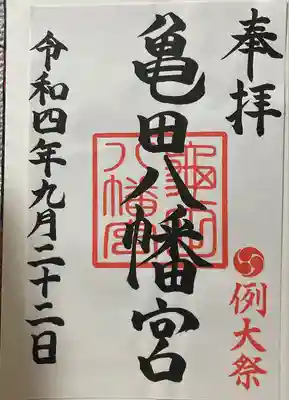 奉拝
例大祭
亀田八幡宮
龜田八幡宮
令和四年九月二十二日